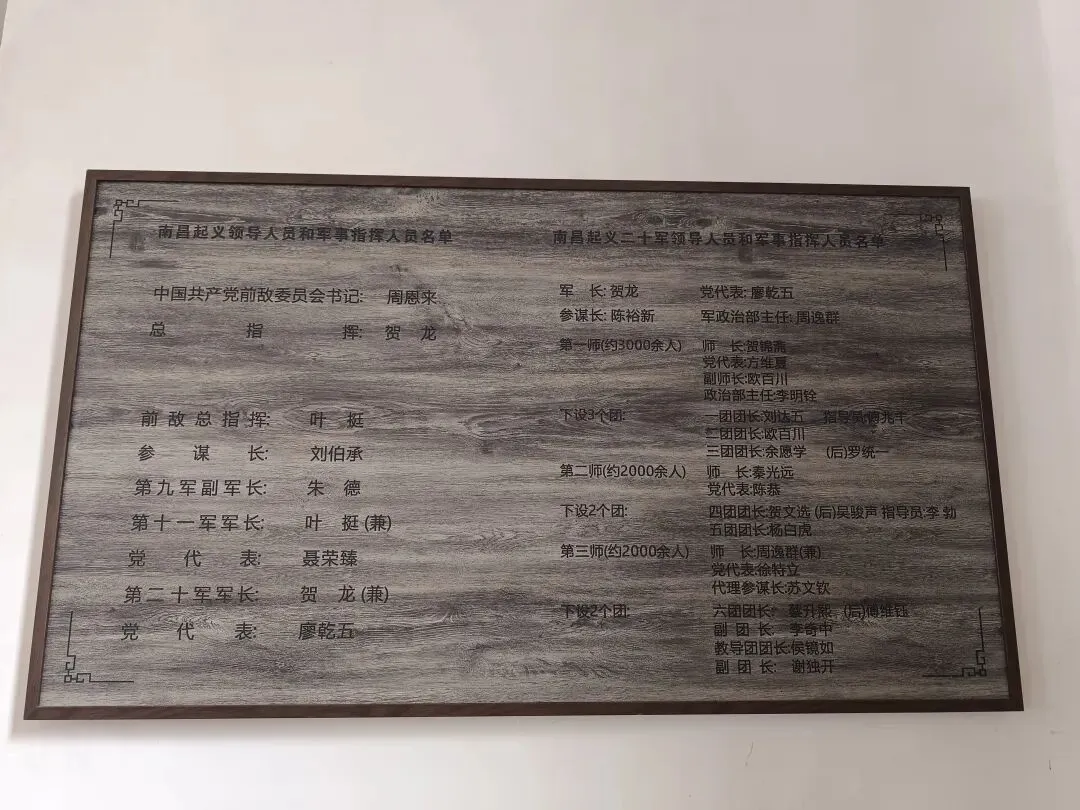 南昌起义领导人员和军事指挥人员名单
中国共产党前敌委员会书记: 周恩来
总指挥: 贺龙
前敌总指挥: 叶挺
参谋长: 刘伯承
第九军副军长: 朱德
第十一军军长: 叶挺(兼)
党代表: 聂荣臻
第二十军军长: 贺龙(兼)
党代表: 廖乾五
南昌起义二十军领导人员和军事指挥人员名单
军长: 贺龙 党代表: 廖乾五
参谋长: 陈裕新 军政治部主任: 周逸群
第一师(约3000余人) 师长:贺锦斋
党代表:方维夏
副师长:欧百川
政治部主任:李明铨
下设3个团: 一团团长:刘达五 指导员:傅兆丰
二团团长:欧百川
三团团长:余愿学 (后)罗统一
第二师(约2000余人) 师长:秦光远
党代表:陈恭
下设2个团: 四团团长:贺文选 (后)吴骏声 指导员:李勃
五团团长:杨白虎
第三师(约2000余人) 师长:周逸群(兼)
党代表:徐特立
代理参谋长:苏文钦
下设2个团: 六团团长: 蔡升熙 (后)傅维钰
副团长: 李奇中
教导团团长:侯镜如
副团长: 谢独开